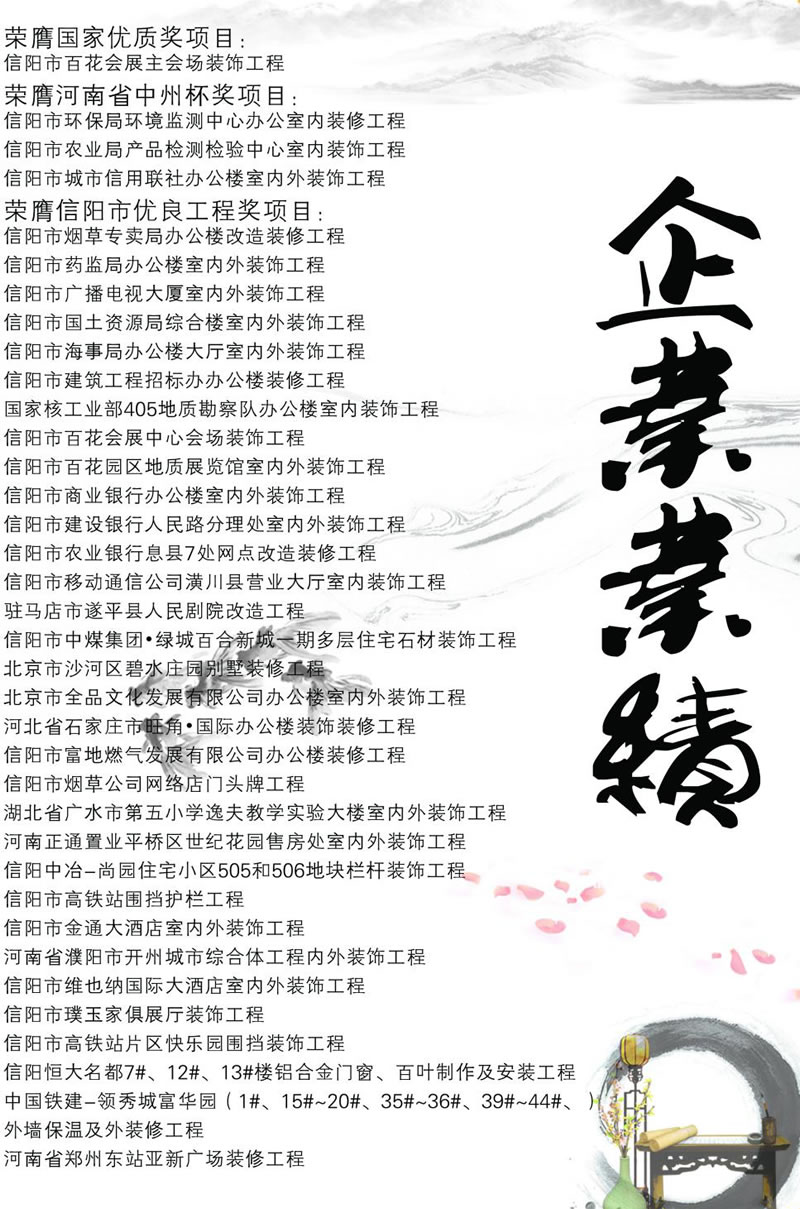 荣膺国家优质奖项目：
信阳市百花会展主会场装饰工程
荣膺河南省中州杯奖项目：
信阳市环保局环境监测中心办公室内装修工程
信阳市农业局产品检测检验中心室内装饰工程
信阳市城市信用联社办公楼室内外装饰工程
荣膺信阳市优良工程奖项目：
信阳市烟草专卖局办公楼改造装修工程
信阳市药监局办公楼室内外装饰工程
信阳市广播电视大厦室内外装饰工程
信阳市国土资源局综合楼室内外装饰工程
信阳市海事局办公楼大厅室内外装饰工程
信阳市建筑工程招标办办公楼装修工程
国家核工业部405地质勘察队办公楼室内装饰工程
信阳市百花会展中心会场装饰工程
信阳市百花园区地质展览馆室内外装饰工程
信阳市商业银行办公楼室内外装饰工程
信阳市建设银行人民路分理处室内外装饰工程
信阳市农业银行息县7处网点改造装修工程
信阳市移动通信公司潢川县营业大厅室内装饰工程
驻马店市遂平县人民剧院改造工程
信阳市中煤集团•绿城百合新城一期多层住宅石材装饰工程
北京市沙河区碧水庄园别墅装修工程
北京市全品文化发展有限公司办公楼室内外装饰工程
河北省石家庄市旺角•国际办公楼装饰装修工程
信阳市富地燃气发展有限公司办公楼装修工程
信阳市烟草公司网络店门头牌工程
湖北省广水市第五小学逸夫教学实验大楼室内外装饰工程
河南正通置业平桥区世纪花园售房处室内外装饰工程
信阳中冶-尚园住宅小区505和506地块栏杆装饰工程
信阳市高铁站围挡护栏工程
信阳市金通大酒店室内外装饰工程
河南省濮阳市开州城市综合体工程内外装饰工程
信阳市维也纳国际大酒店室内外装饰工程
信阳市璞玉家俱展厅装饰工程
信阳市高铁站片区快乐园围挡装饰工程
信阳恒大名都7#、12#、13#楼铝合金门窗、百叶制作及安装工程
中国铁建-领秀城富华园（1#、15#~20#、35#~36#、39#~44#、）
外墙保温及外装修工程
河南省郑州东站亚新广场装修工程
企业业績